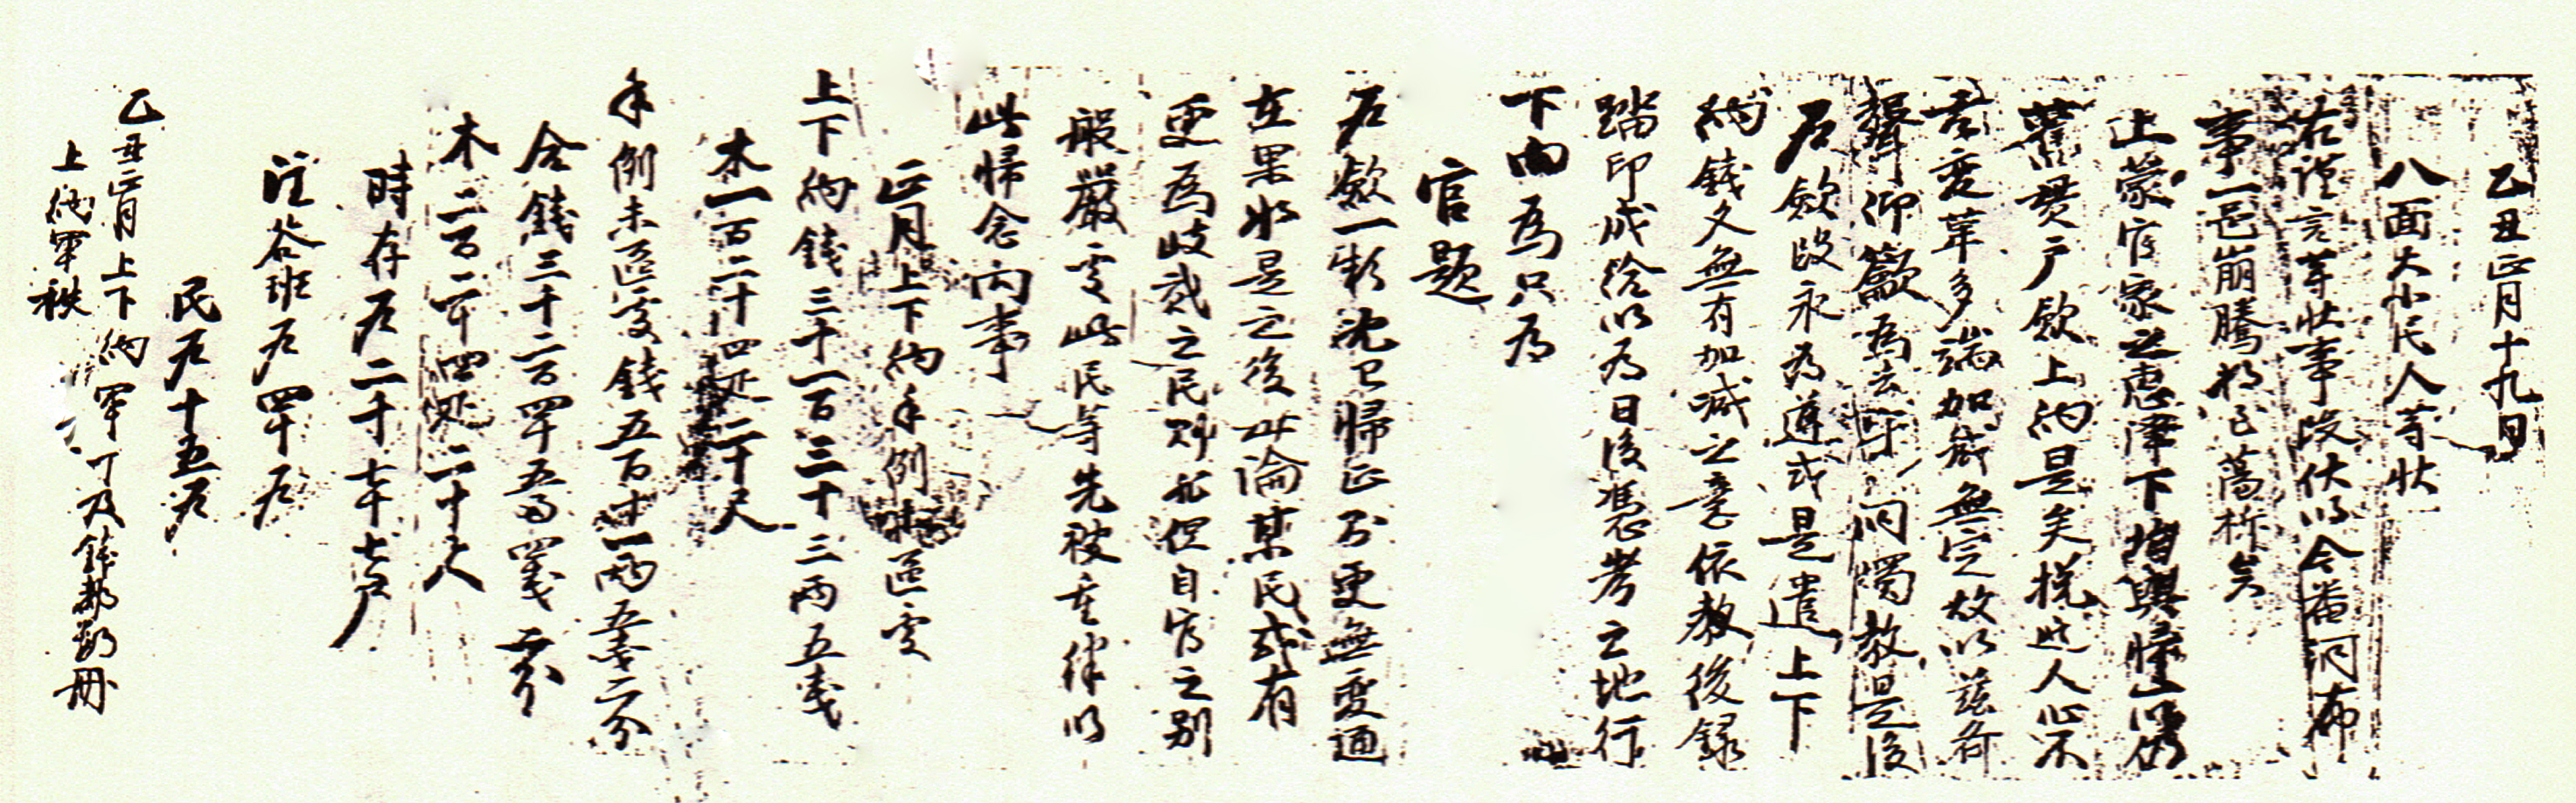 乙丑正月十九日
八面大小民人等狀
右謹言等狀事段伏以今番洞布
事一邑崩騰
上蒙官家之惠澤下均與情以仍
舊貫戶斂上納是矣挽近人心不
古変革多端加節無定故以茲齊
聲仰籲為去乎洞燭敎是後
戶斂段永為遵式是遣上下
納錢又無有加減之意依敎後錄
踏印成給以為日後憑考之地行
下向為只為
官題
戶斂一款沈已歸正不更無変通
在果如是之後此論某民或有
更為岐貳之民則非但自官之別
般嚴処此民等先被重律以
此歸念向事
正月上下納手例區処
上下納錢三千一百三十三兩五戔
木一百二十四疋二十尺
手例未區処錢五百十一兩五戔二分
合錢三千二百四十五兩四戔二分
木二百二十四疋二十尺
時存戶二千七十七戶
註谷班戶四十戶
民戶十五戶
乙丑正月上下納軍丁及錢都數冊
上納軍秩